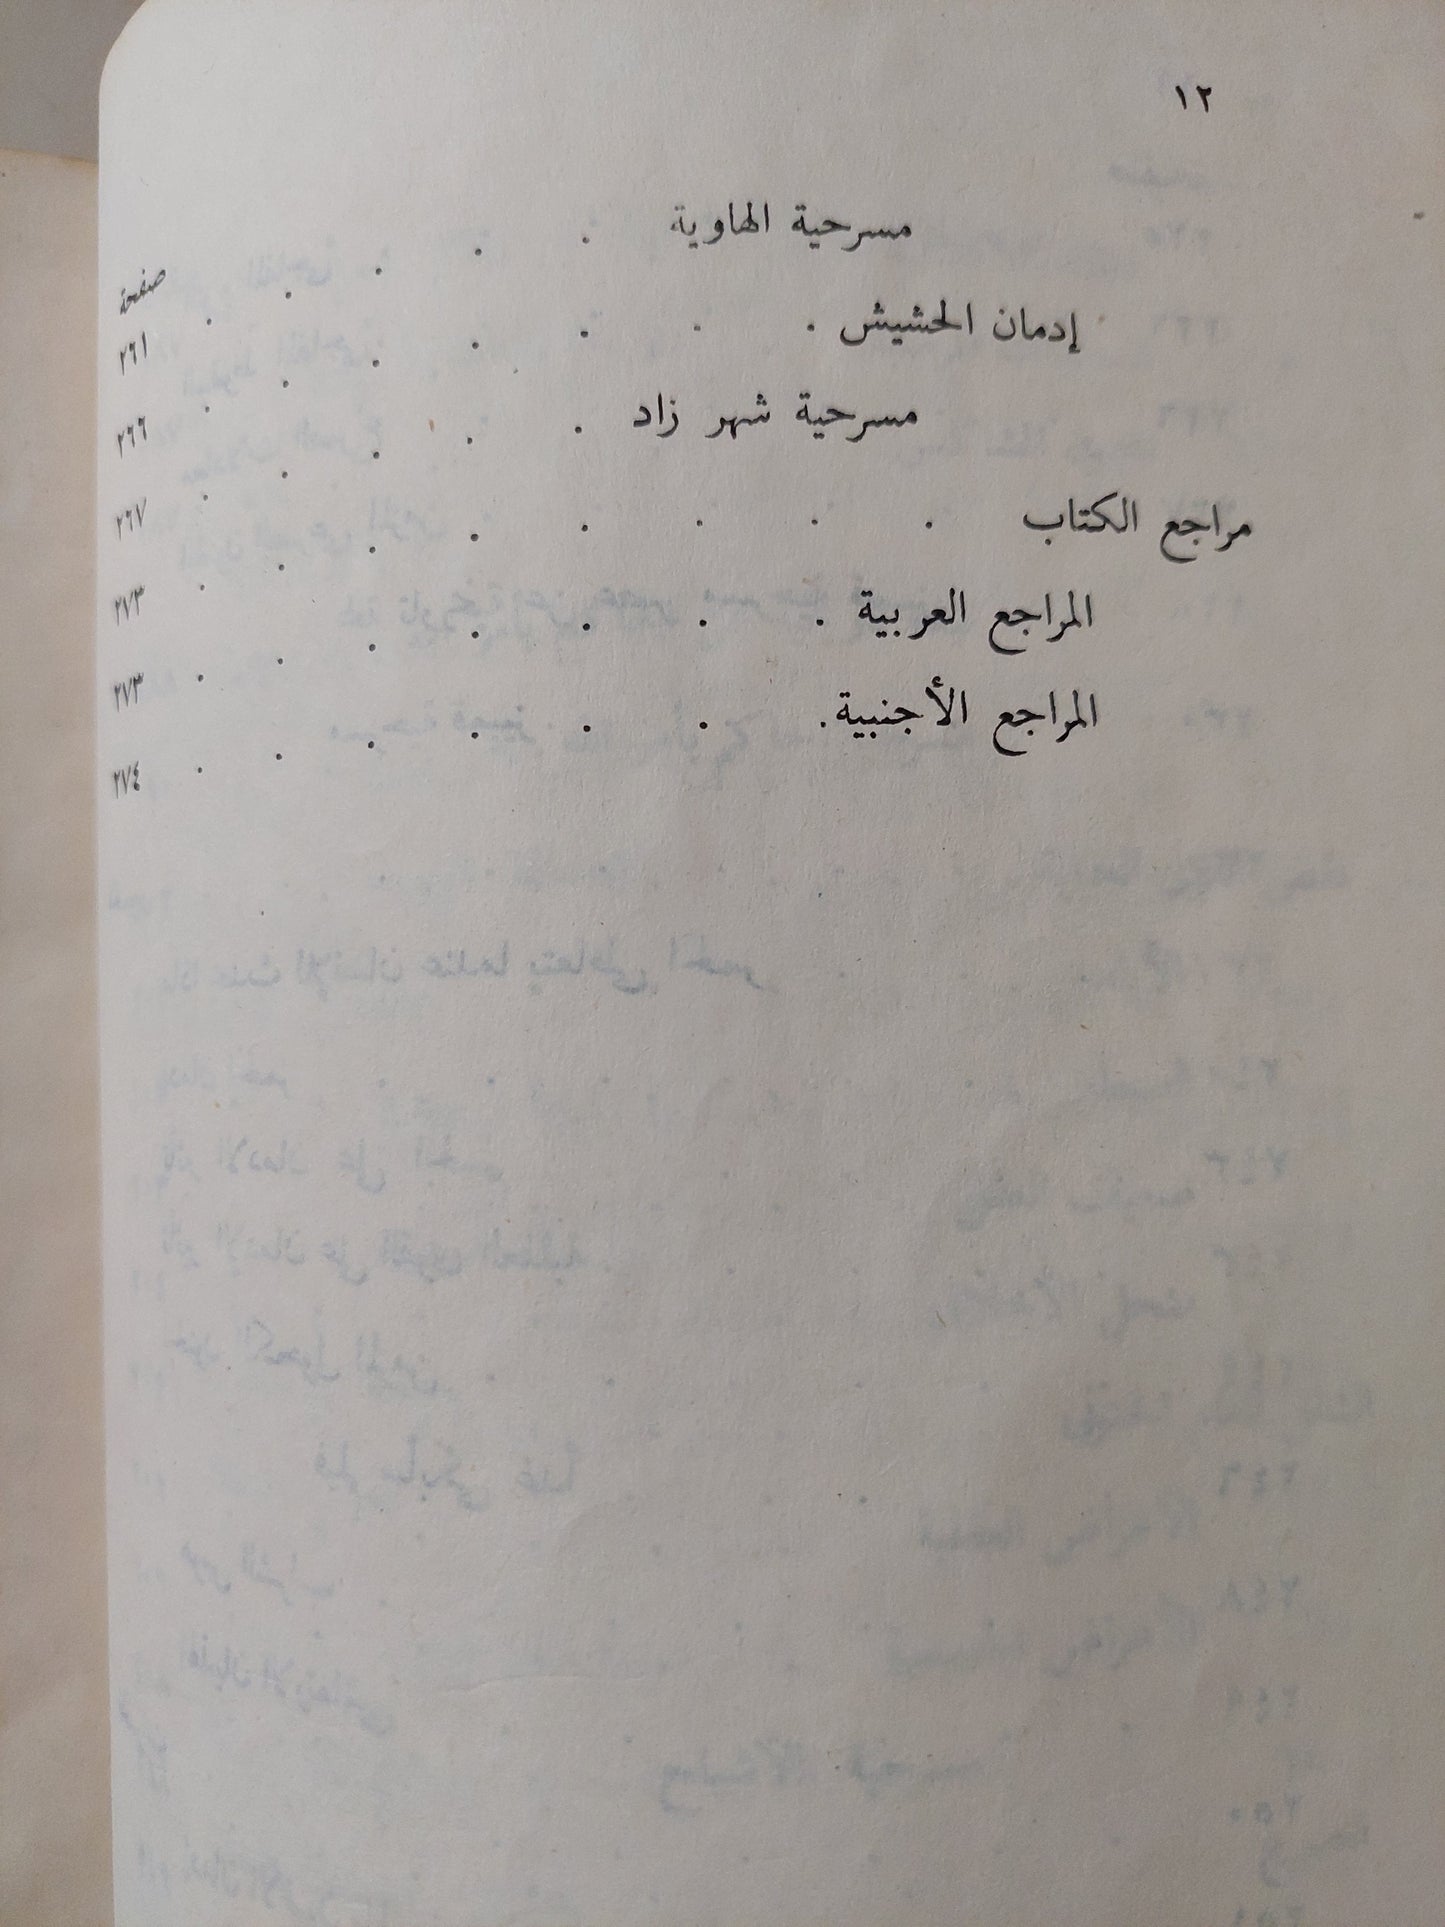 ١٢
صفحة
مسرحية الهاوية . . . . . ٢٦١
إدمان الحشيش . . . . . . . ٢٦٦
مسرحية شهر زاد . . . . . ٢٦٧
مراجع الكتاب . . . . . . . . ٢٧٣
المراجع العربية . . . . . . . ٢٧٣
المراجع الأجنبية . . . . . . . ٢٧٤